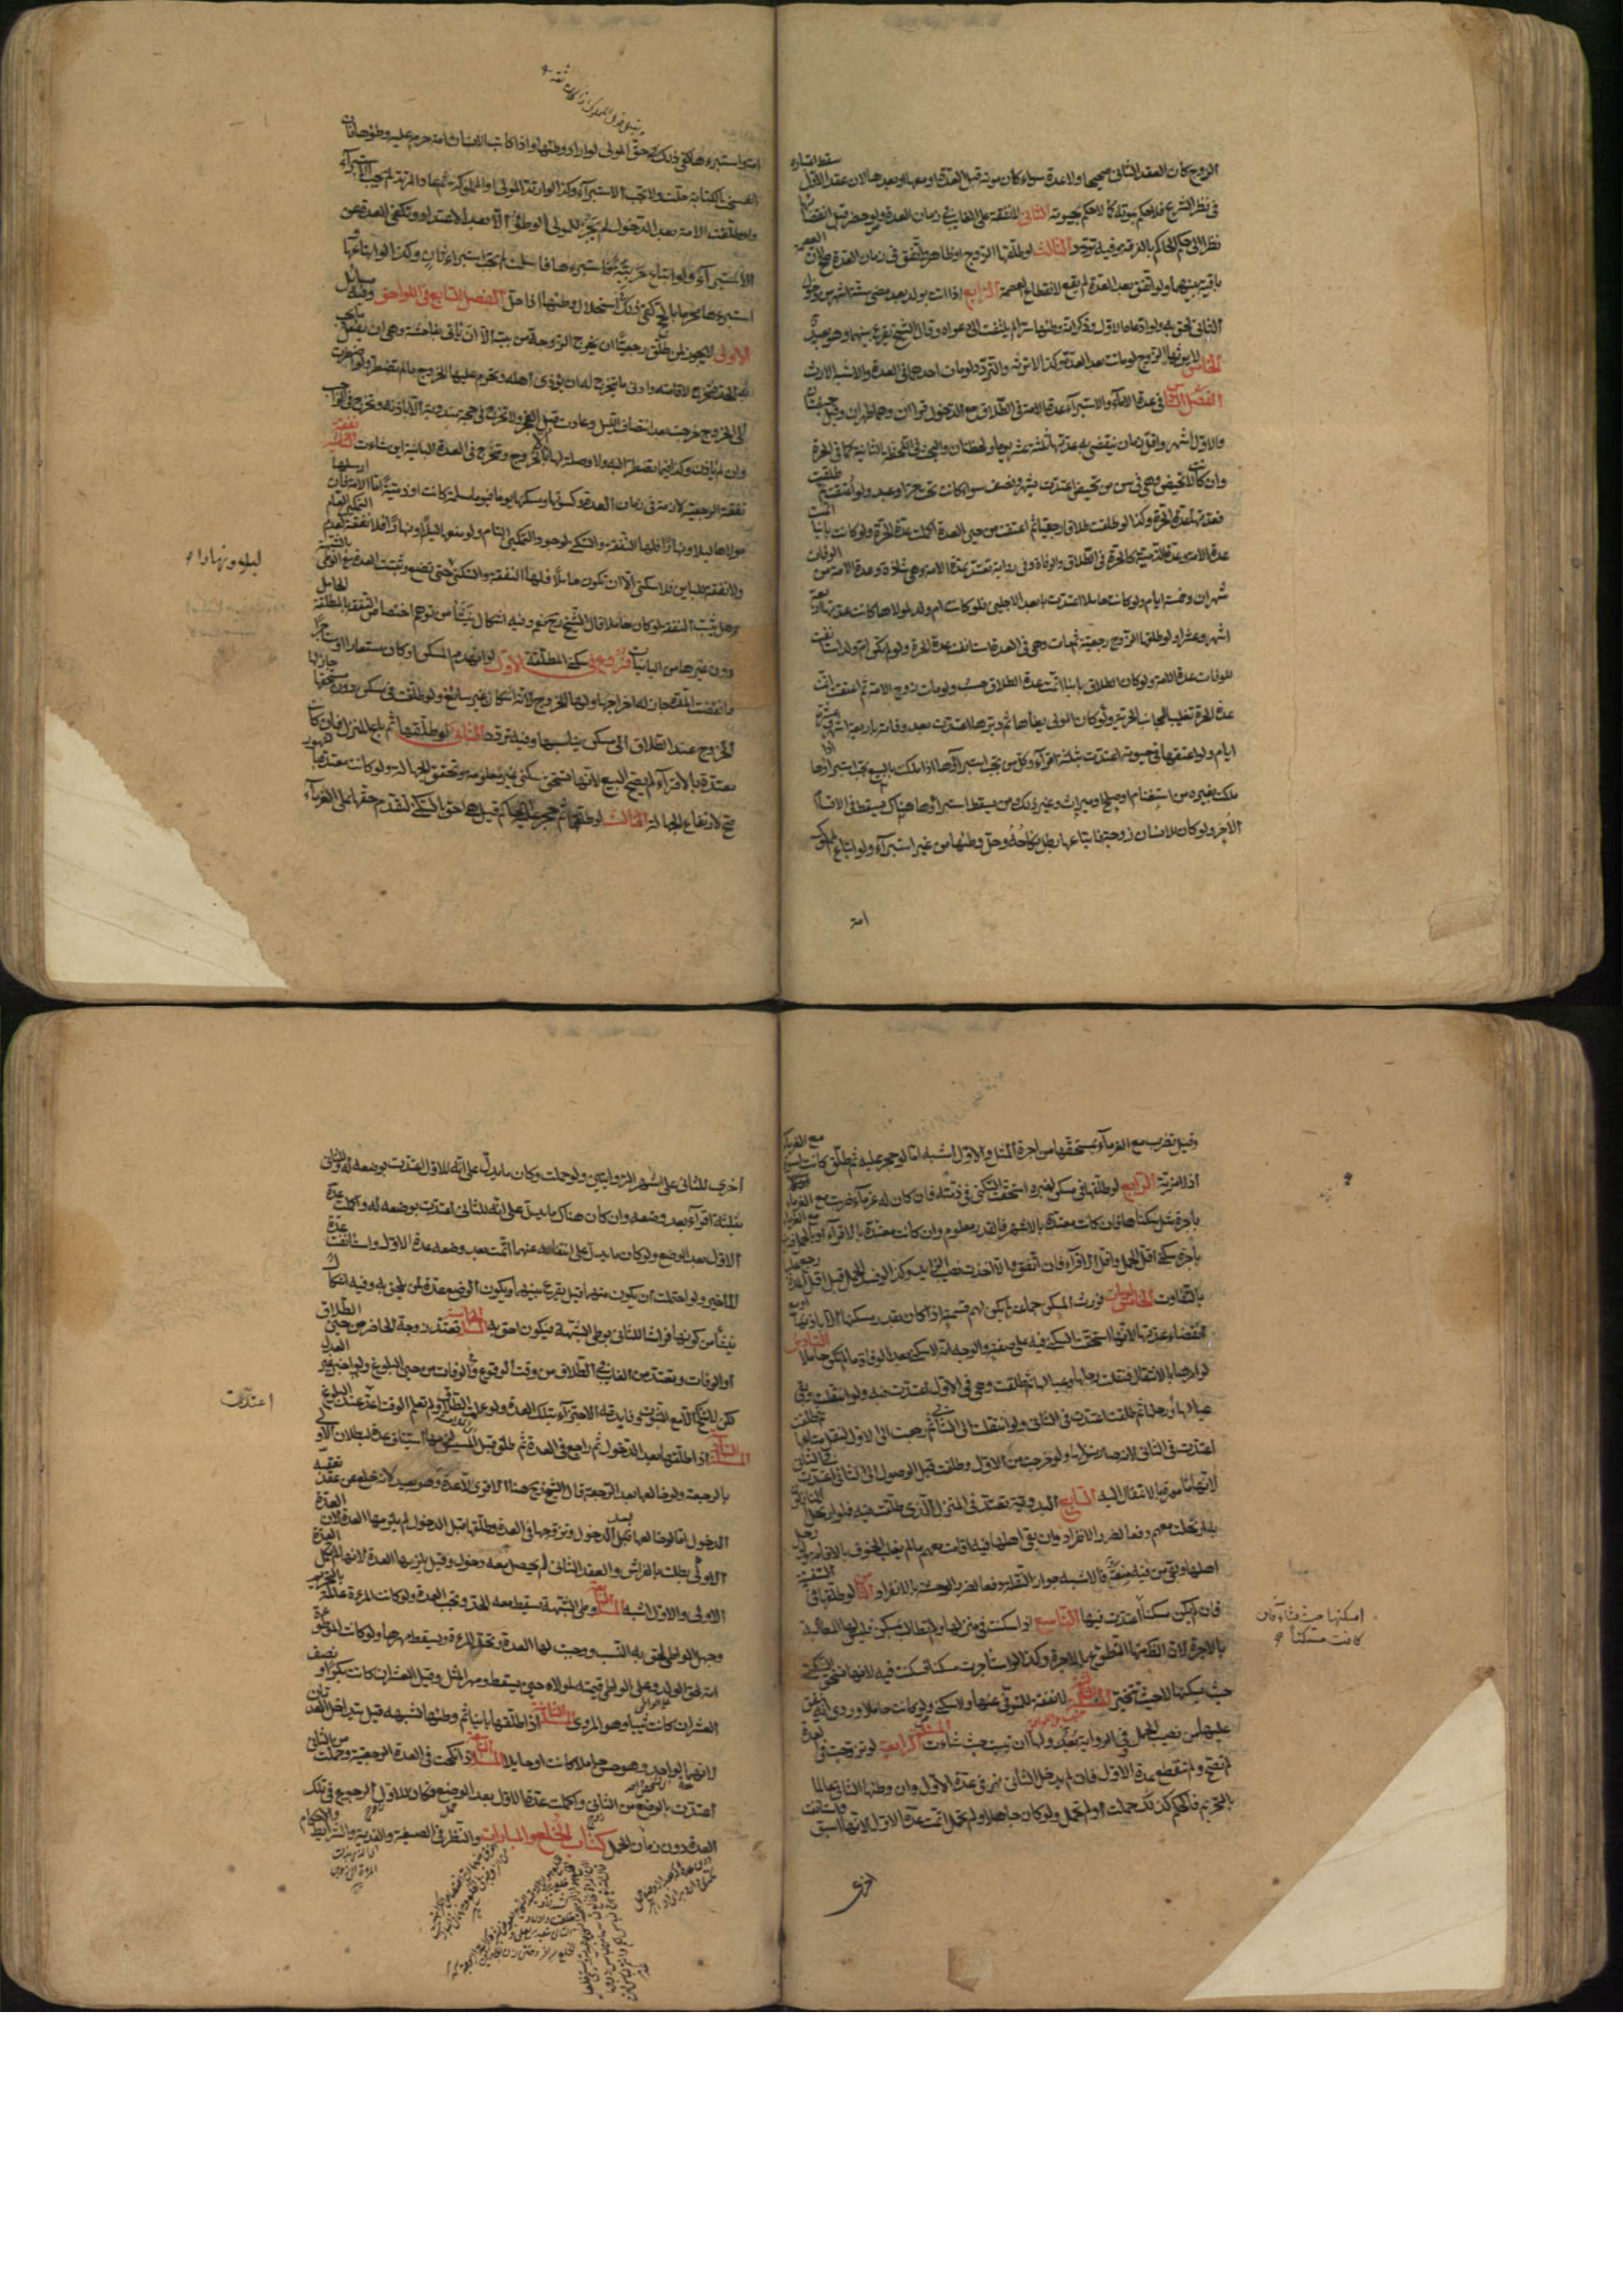 الزوج كان العقد الثاني صحيحا ولا عدة سواء كان موته قبل العدة او معها او بعدها لان عقد الاول سقط اعتباره
في نظر الشرع فلا حكم لموته كما لا حكم لحيوته الثاني لا نفقة على الغايب في زمان العدة ولو حضر قبل انقضائها
نظرا الى حكم الحاكم بالفرقة وفيه تردد الثالث لو طلقها الزوج او ظاهر واتفق في زمان العدة صح لان العصمة
باقية بينهما ولو اتفق بعد العدة لم يقع لانقطاع العصمة الرابع اذا اتت بولد بعد مضي ستة اشهر من دخول
الثاني لحق به ولو ادعاه الاول وذكر انه وطئها سرا لم يلتفت الى دعواه وقال الشيخ يقرع بينهما وهو بعيد
الخامس لا يرثها الزوج لو ماتت بعد العدة وكذا لا ترثه والتردد لو مات احدهما في العدة والاشبه الارث
الفصل السادس في عدة الاماء والاستبراء عدة الامة في الطلاق مع الدخول قرءان وهما طهران وقيل حيضتان
والاول اشهر واقل زمان ينقضي به عدتها ثلثة عشر يوما ولحظتان والبحث في اللحظة الثانية كما في الحرة
وان كانت لا تحيض وهي في سن من تحيض اعتدت بشهر ونصف سواء كانت تحت حر او عبد ولو اعتقت ثم طلقت
فعدتها عدة الحرة وكذا لو طلقت طلاقا رجعيا ثم اعتقت في العدة اكملت عدة الحرة ولو كانت باينا اتمت
عدة الامة وعدة الذمية كالحرة في الطلاق والوفاة وفي رواية تعتد عدة الامة وهي شاذة وعدة الامة من الوفات
شهران وخمسة ايام ولو كانت حاملا اعتدت بابعد الاجلين فلو كانت ام ولد لمولاها كانت عدتها اربعة
اشهر وعشرا ولو طلقها الزوج رجعية ثم مات وهي في العدة استانفت عدة الحرة ولو لم تكن ام ولد استانفت
للوفات عدة الامة ولو كان الطلاق باينا اتمت عدة الطلاق حسب ولو مات زوج الامة ثم اعتقت اتمت
عدة الحرة تغليبا لجانب الحرية ولو كان المولى يطأها ثم دبرها اعتدت بعد وفاته باربعة اشهر وعشرة
ايام ولو اعتقها في حيوته اعتدت بثلثة اقراء وكل من يجب استبراؤها اذا ملكت بالبيع يجب استبراؤها اذا
ملكت بغيره من استغنام او صلح او ميراث وغير ذلك ومن يسقط استبراؤها هناك يسقط في الاقسام
الاخر ولو كان للانسان زوجة فابتاعها بطل نكاحه وحل وطئها من غير استبراء ولو ابتاع المملوك
امة
امة واستبرءها كفى ذلك في حق المولى لو اراد وطئها واذا كاتب الانسان امته حرم عليه وطؤها فان
انفسخت الكتابة حلت ولا يجب الاستبراء وكذا لو ارتد المولى او المملوكة ثم عاد المرتد لم يجب الاستبراء
ولو طلقت الامة بعد الدخول لم يجز للمولى الوطئ الا بعد الاعتداد وتكفي العدة عن
الاستبراء ولو ابتاع حربية فاستبرءها فاسلمت لم يجب استبراء ثان وكذا لو ابتاعها و
استبرءها محرما بالحج كفى ذلك في استحلال وطئها اذا احل الفصل السابع في اللواحق وفيه مسائل
الاولى لا يجوز لمن طلق رجعيا ان يخرج الزوجة من بيته الا ان يأتي بفاحشة وهي ان تفعل ما يجب
به الحد فتخرج لاقامته وادنى ما تخرج له ان تؤذي اهله ويحرم عليها الخروج ما لم تضطر ولو اضطرت
الى الخروج خرجت بعد انتصاف الليل وعادت قبل الفجر ولا تخرج في حجة مندوبة الا باذنه وتخرج في الواجب
وان لم ياذن وكذا فيما تضطر اليه ولا وصلة لها الا بالخروج وتخرج في العدة الباينة اين شاءت الثانية نفقة
نفقة الرجعية لازمة في زمان العدة وكسوتها ومسكنها يوما فيوما مسلمة كانت او ذمية اما الامة فان ارسلها
مولاها ليلا ونهارا فلها النفقة والسكنى لوجود التمكين التام ولو منعها ليلا او نهارا فلا نفقة لعدم التمكين التام
ولا نفقة للباين ولا سكنى الا ان تكون حاملا فلها النفقة والسكنى حتى تضع وتثبت العدة مع الوطئ بالشبهة
وهل تثبت النفقة لو كان حاملا قال الشيخ ره نعم وفيه اشكال ينشأ من توهم اختصاص النفقة بالمطلقة الحامل
دون غيرها من الباينات فروع في سكنى المطلقة الاول لو انهدم المسكن او كان مستعارا او مستاجرا
فانقضت المدة جاز له اخراجها ولها الخروج لانه اسكان غير سايغ ولو طلقت في مسكن دون مستحقها جاز لها
الخروج عند الطلاق الى مسكن يناسبها وفيه تردد الثاني لو طلقها ثم باع المنزل فان كانت
معتدة بالاقراء لم يصح البيع لانها تستحق سكنى غير معلومة فتحقق الجهالة ولو كانت معتدة بالشهور
صح لارتفاع الجهالة الثالث لو طلقها ثم حجر عليه الحاكم قيل هي احق بالسكنى لتقدم حقها على الغرماء
ليلا ونهارا
وقيل تضرب مع الغرماء بمستحقها من اجرة المثل والاول اشبه اما لو حجر عليه ثم طلق كانت اسوة مع الغرماء
اذ لا مزية الرابع لو طلقها في مسكن لغيره استحقت السكنى في ذمته فان كان له غرماء ضربت مع الغرماء
باجرة مثل سكناها فان كانت معتدة بالاشهر فالقدر معلوم وان كانت معتدة بالاقراء او بالحمل ضربت مع الغرماء
باجرة سكنى اقل الحمل واقل الاقراء فان اتفق والا اخذت نصيب الزايد وكذا لو فسد الحمل قبل اقل المدة رجع عليها
بالتفاوت الخامس لو مات فورث المسكن جماعة لم يكن لهم قسمته اذا كان بقدر مسكنها الا باذنها او مع
انقضاء عدتها لانها استحقت السكنى فيه على صفته والوجه انه لا سكنى بعد الوفاة ما لم تكن حاملا السادس
لو امرها بالانتقال فنقلت رحلها وعيالها ثم طلقت وهي في الاول اعتدت فيه ولو انتقلت وبقي
عيالها او رحلها ثم طلقت اعتدت في الثاني ولو انتقلت الى الثاني ثم رجعت الى الاول لنقل متاعها ثم طلقت
اعتدت في الثاني لانه صار منزلها ولو خرجت من الاول وطلقت قبل الوصول الى الثاني اعتدت في الثاني
لانها مامورة بالانتقال اليه السابع البدوية تعتد في المنزل الذي طلقت فيه فلو ارتحل النازلون
به ارتحلت معهم دفعا لضرر الانفراد وان بقي اهلها فيه اقامت معهم ما لم يغلب الخوف بالاقامة ولو رحل
اهلها وبقي من فيه منعة فالاشبه جواز النقلة دفعا لضرر الوحشة بالانفراد الثامن لو طلقها في السفينة
فان لم يكن سكنا اعتدت فيها التاسع اذا سكنت في منزلها ولم تطالب بمسكن فليس لها المطالبة
بالاجرة لان الظاهر منها التطوع بالاجرة وكذا لو استاجرت مسكنا فسكنت فيه لانها تستحق السكنى
حيث يسكنها لا حيث تتخير المسئلة الثالثة لا نفقة للمتوفى عنها ولا سكنى ولو كانت حاملا وروي انه ينفق
عليها من نصيب الحمل وفي الرواية بعد ولها ان تبيت حيث شاءت المسئلة الرابعة لو تزوجت في العدة
لم يصح ولم تنقطع عدة الاول فان لم يدخل الثاني فهي في عدة الاول وان وطئها الثاني عالما
بالتحريم فالحكم كذلك حملت او لم تحمل ولو كان جاهلا ولم تحمل اتمت عدة الاول لانها اسبق واستانفت
اخرى
اسكنها حيث شاء فان
كانت مسكنا
اخرى للثاني على اشهر الروايتين ولو حملت وكان ما يدل على انه للاول اعتدت بوضعه له وللثاني
بثلثة اقراء بعد وضعه وان كان هناك ما يدل على انه للثاني اعتدت بوضعه له واكملت عدة
الاول بعد الوضع ولو كان ما يدل على انتفائه عنهما اتمت بعد وضعه عدة الاول واستانفت عدة
للاخير ولو احتمل ان يكون منهما قيل يقرع بينهما ويكون الوضع عدة لمن يلحق به وفيه اشكال
ينشأ من كونها فراشا للثاني بوطئ الشبهة فيكون احق به المسئلة الخامسة تعتد زوجة الحاضر من حين الطلاق
او الوفات وتعتد من الغايب في الطلاق من وقت الوقوع وفي الوفات من حين البلوغ ولو اخبر غير العدل
لكن لا تنكح الا مع الثبوت وفايدته الاجتزاء بتلك العدة ولو علمت الطلاق ولم تعلم الوقت اعتدت عند البلوغ
المسئلة السادسة اذا طلقها بعد الدخول ثم راجع في العدة ثم طلق قبل المسيس لزمها استيناف عدة لبطلان الاولى
بالرجعة ولو خالعها بعد الرجعة قال الشيخ ره هنا الاقوى لا عدة وهو بعيد لانه خلع عن عقد تعقبه
الدخول اما لو خالعها بعد الدخول وتزوجها في العدة وطلقها قبل الدخول لم يلزمها العدة لان العدة
الاولى بطلت بالفراش والعقد الثاني لم يحصل معه دخول وقيل يلزمها العدة لانها لم تكمل العدة
الاولى والاول اشبه المسئلة السابعة وطئ الشبهة يسقط معه الحد وتجب العدة ولو كانت المرءة عالمة بالتحريم
وجهل الواطئ لحق به النسب ووجبت لها العدة وتحد المرءة ويسقط مهرها ولو كانت الموطوءة
امة لحق الولد وعلى الواطئ قيمته لمولاه حين يسقط ومهر المثل وقيل العشر ان كانت بكرا ونصف
العشر ان كانت ثيبا وهو المروي المسئلة الثامنة اذا طلقها باينا ثم وطئها لشبهة قيل يتداخل العدتان
لانهما لواحد وهو حسن حاملا كانت او حايلا المسئلة التاسعة اذا نكحت في العدة الرجعية وحملت من الثاني
اعتدت بالوضع من الثاني واكملت عدة الاول بعد الوضع فكان للاول الرجوع في تلك
العدة دون زمان الحمل كتاب الخلع والمبارات والنظر في الصيغة والفدية والشرايط والاحكام
اعتدت